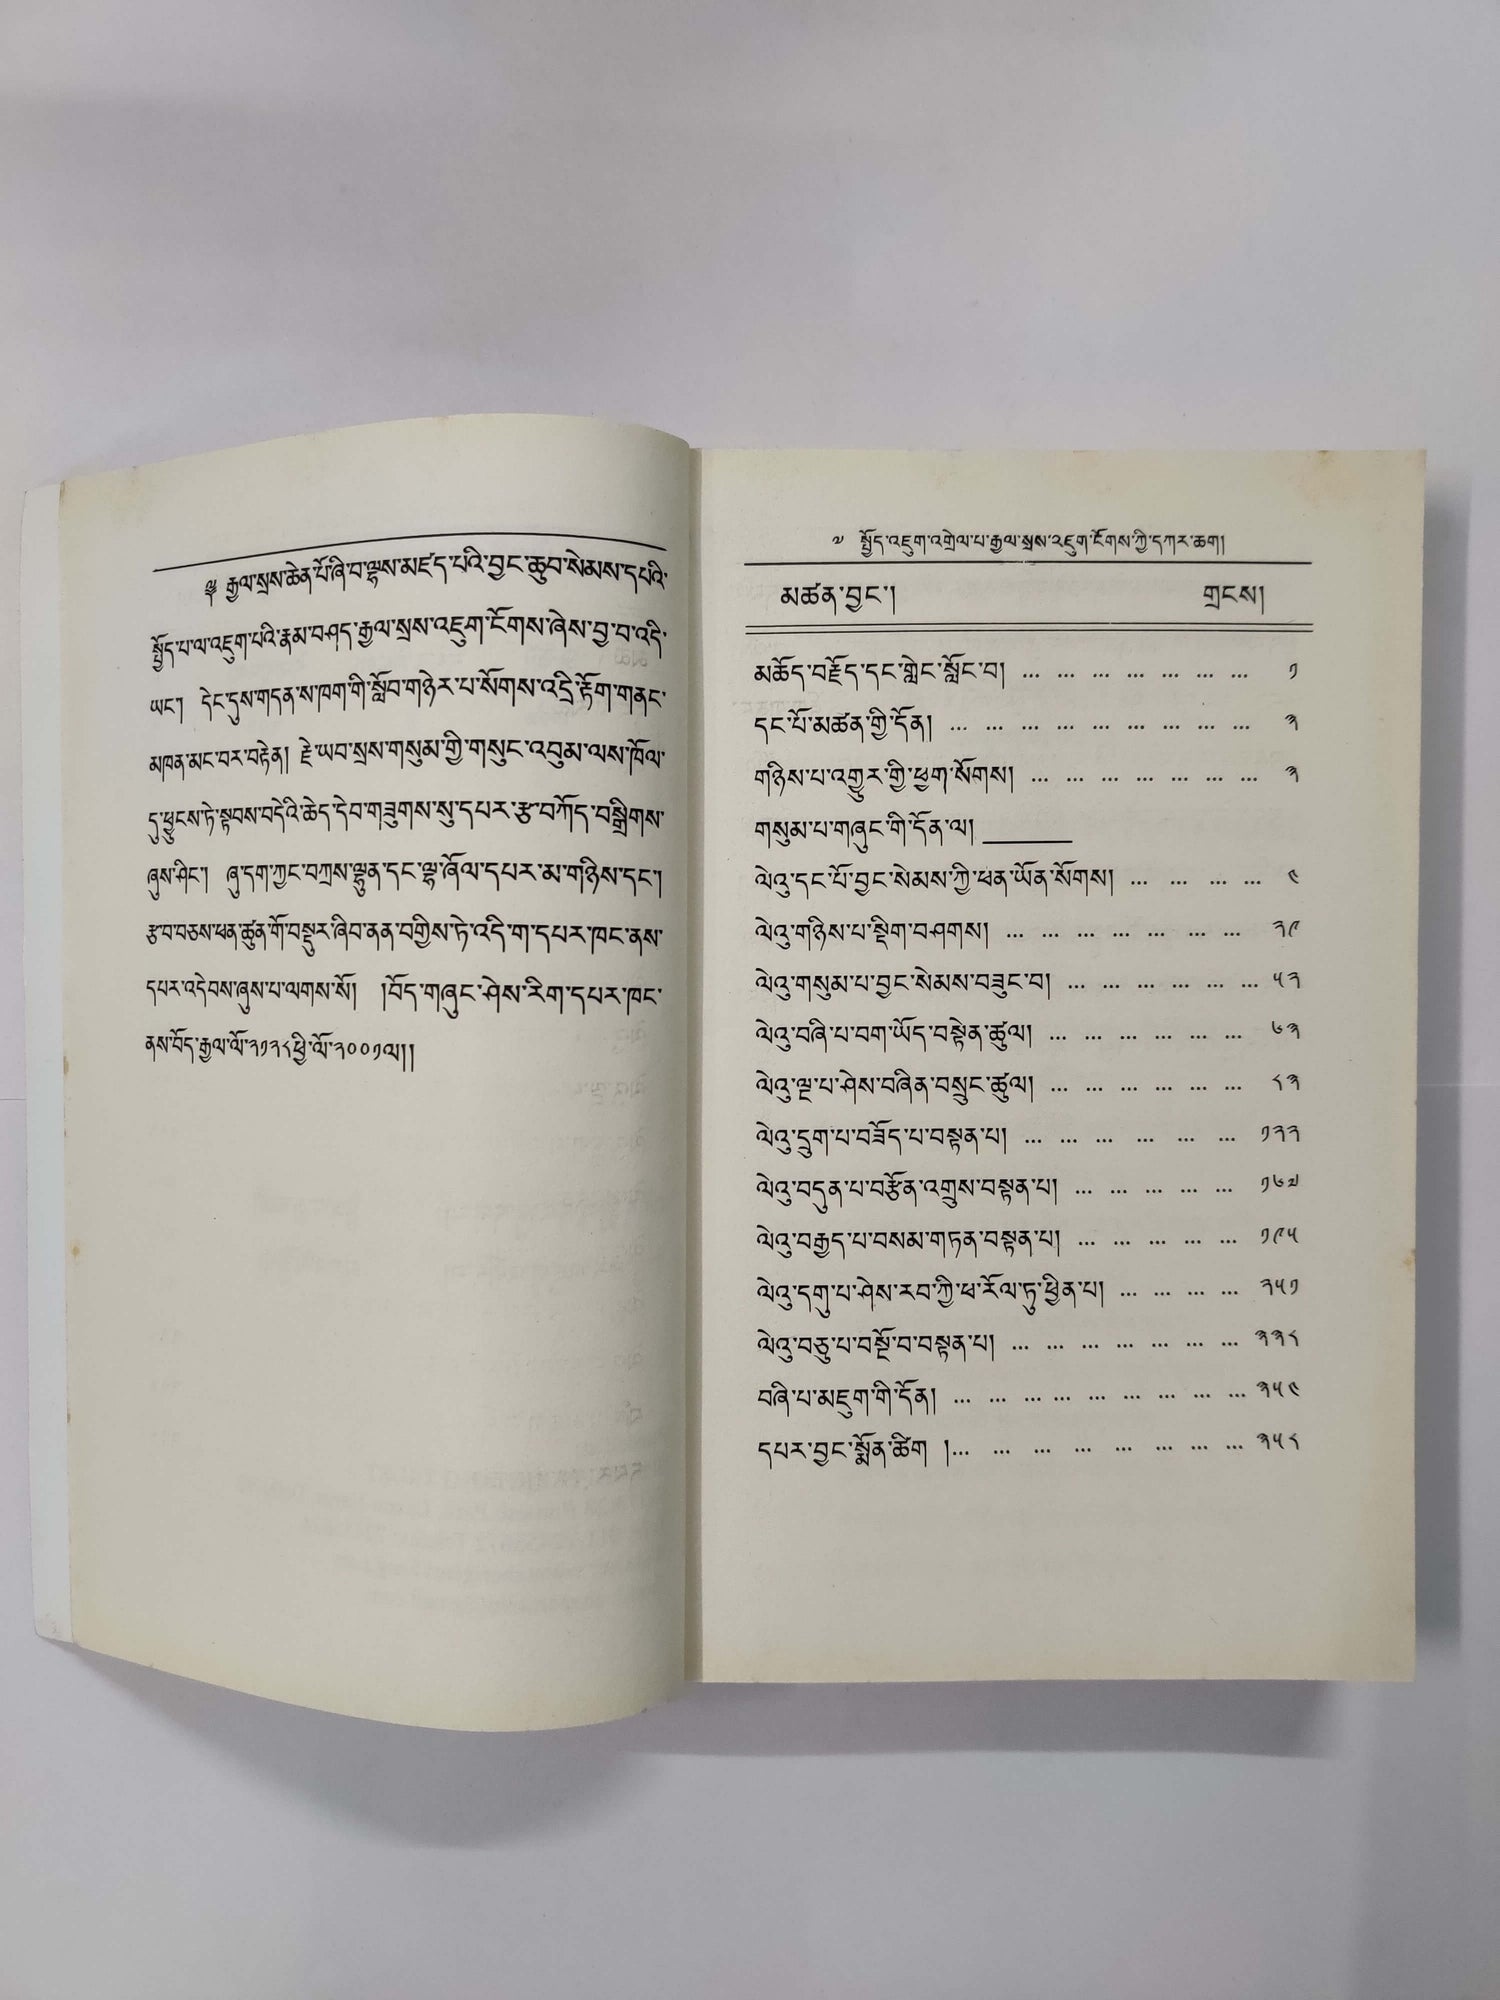 ༄ རྒྱལ་སྲས་ཆེན་པོ་ཞི་བ་ལྷས་མཛད་པའི་བྱང་ཆུབ་སེམས་དཔའི་
སྤྱོད་པ་ལ་འཇུག་པའི་རྣམ་བཤད་རྒྱལ་སྲས་འཇུག་ངོགས་ཞེས་བྱ་བ་འདི་
ཡང༌། དེང་དུས་གདན་ས་ཁག་གི་སློབ་གཉེར་པ་སོགས་འདྲི་རྟོག་གནང་
མཁན་མང་བར་བརྟེན། རྗེ་ཡབ་སྲས་གསུམ་གྱི་གསུང་འབུམ་ལས་ཁོལ་
དུ་ཕྱུངས་ཏེ་སྟབས་བདེའི་ཆེད་དེབ་གཟུགས་སུ་དཔར་རྩ་བཀོད་བསྒྲིགས་
ཞུས་ཤིང༌། ཞུ་དག་ཀྱང་བཀྲས་ལྷུན་དང་ལྷ་ཞོལ་དཔར་མ་གཉིས་དང༌།
རྩ་བ་བཅས་ཕན་ཚུན་གོ་བསྡུར་ཞིབ་ནན་བགྱིས་ཏེ་འདི་ག་དཔར་ཁང་ནས་
དཔར་འདེབས་ཞུས་པ་ལགས་སོ། །བོད་གཞུང་ཤེས་རིག་དཔར་ཁང་
ནས་བོད་རྒྱལ་ལོ་༢༡༢༨ཕྱི་ལོ་༢༠༠༡ལ།།
༧ སྤྱོད་འཇུག་འགྲེལ་པ་རྒྱལ་སྲས་འཇུག་ངོགས་ཀྱི་དཀར་ཆག།
མཚན་བྱང༌། གྲངས།
མཆོད་བརྗོད་དང་གླེང་སློང་བ། ... ... ... ... ... ... ... ༡
དང་པོ་མཚན་གྱི་དོན། ... ... ... ... ... ... ... ... ... ༣
གཉིས་པ་འགྱུར་གྱི་ཕྱག་སོགས། ... ... ... ... ... ... ... ༣
གསུམ་པ་གཞུང་གི་དོན་ལ། ______
ལེའུ་དང་པོ་བྱང་སེམས་ཀྱི་ཕན་ཡོན་སོགས། ... ... ... ... ༤
ལེའུ་གཉིས་པ་སྡིག་བཤགས། ... ... ... ... ... ... ... ༢༩
ལེའུ་གསུམ་པ་བྱང་སེམས་བཟུང་བ། ... ... ... ... ... ... ༥༢
ལེའུ་བཞི་པ་བག་ཡོད་བསྟེན་ཚུལ། ... ... ... ... ... ... ༦༣
ལེའུ་ལྔ་པ་ཤེས་བཞིན་བསྲུང་ཚུལ། ... ... ... ... ... ... ༨༣
ལེའུ་དྲུག་པ་བཟོད་པ་བསྟན་པ། ... ... ... ... ... ... ༡༢༢
ལེའུ་བདུན་པ་བརྩོན་འགྲུས་བསྟན་པ། ... ... ... ... ... ༡༦༧
ལེའུ་བརྒྱད་པ་བསམ་གཏན་བསྟན་པ། ... ... ... ... ... ༡༩༥
ལེའུ་དགུ་པ་ཤེས་རབ་ཀྱི་ཕ་རོལ་ཏུ་ཕྱིན་པ། ... ... ... ... ༢༥༡
ལེའུ་བཅུ་པ་བསྔོ་བ་བསྟན་པ། ... ... ... ... ... ... ... ༣༣༨
བཞི་པ་མཇུག་གི་དོན། ... ... ... ... ... ... ... ... ... ༣༥༤
དཔར་བྱང་སྨོན་ཚིག །... ... ... ... ... ... ... ... ༣༥༨